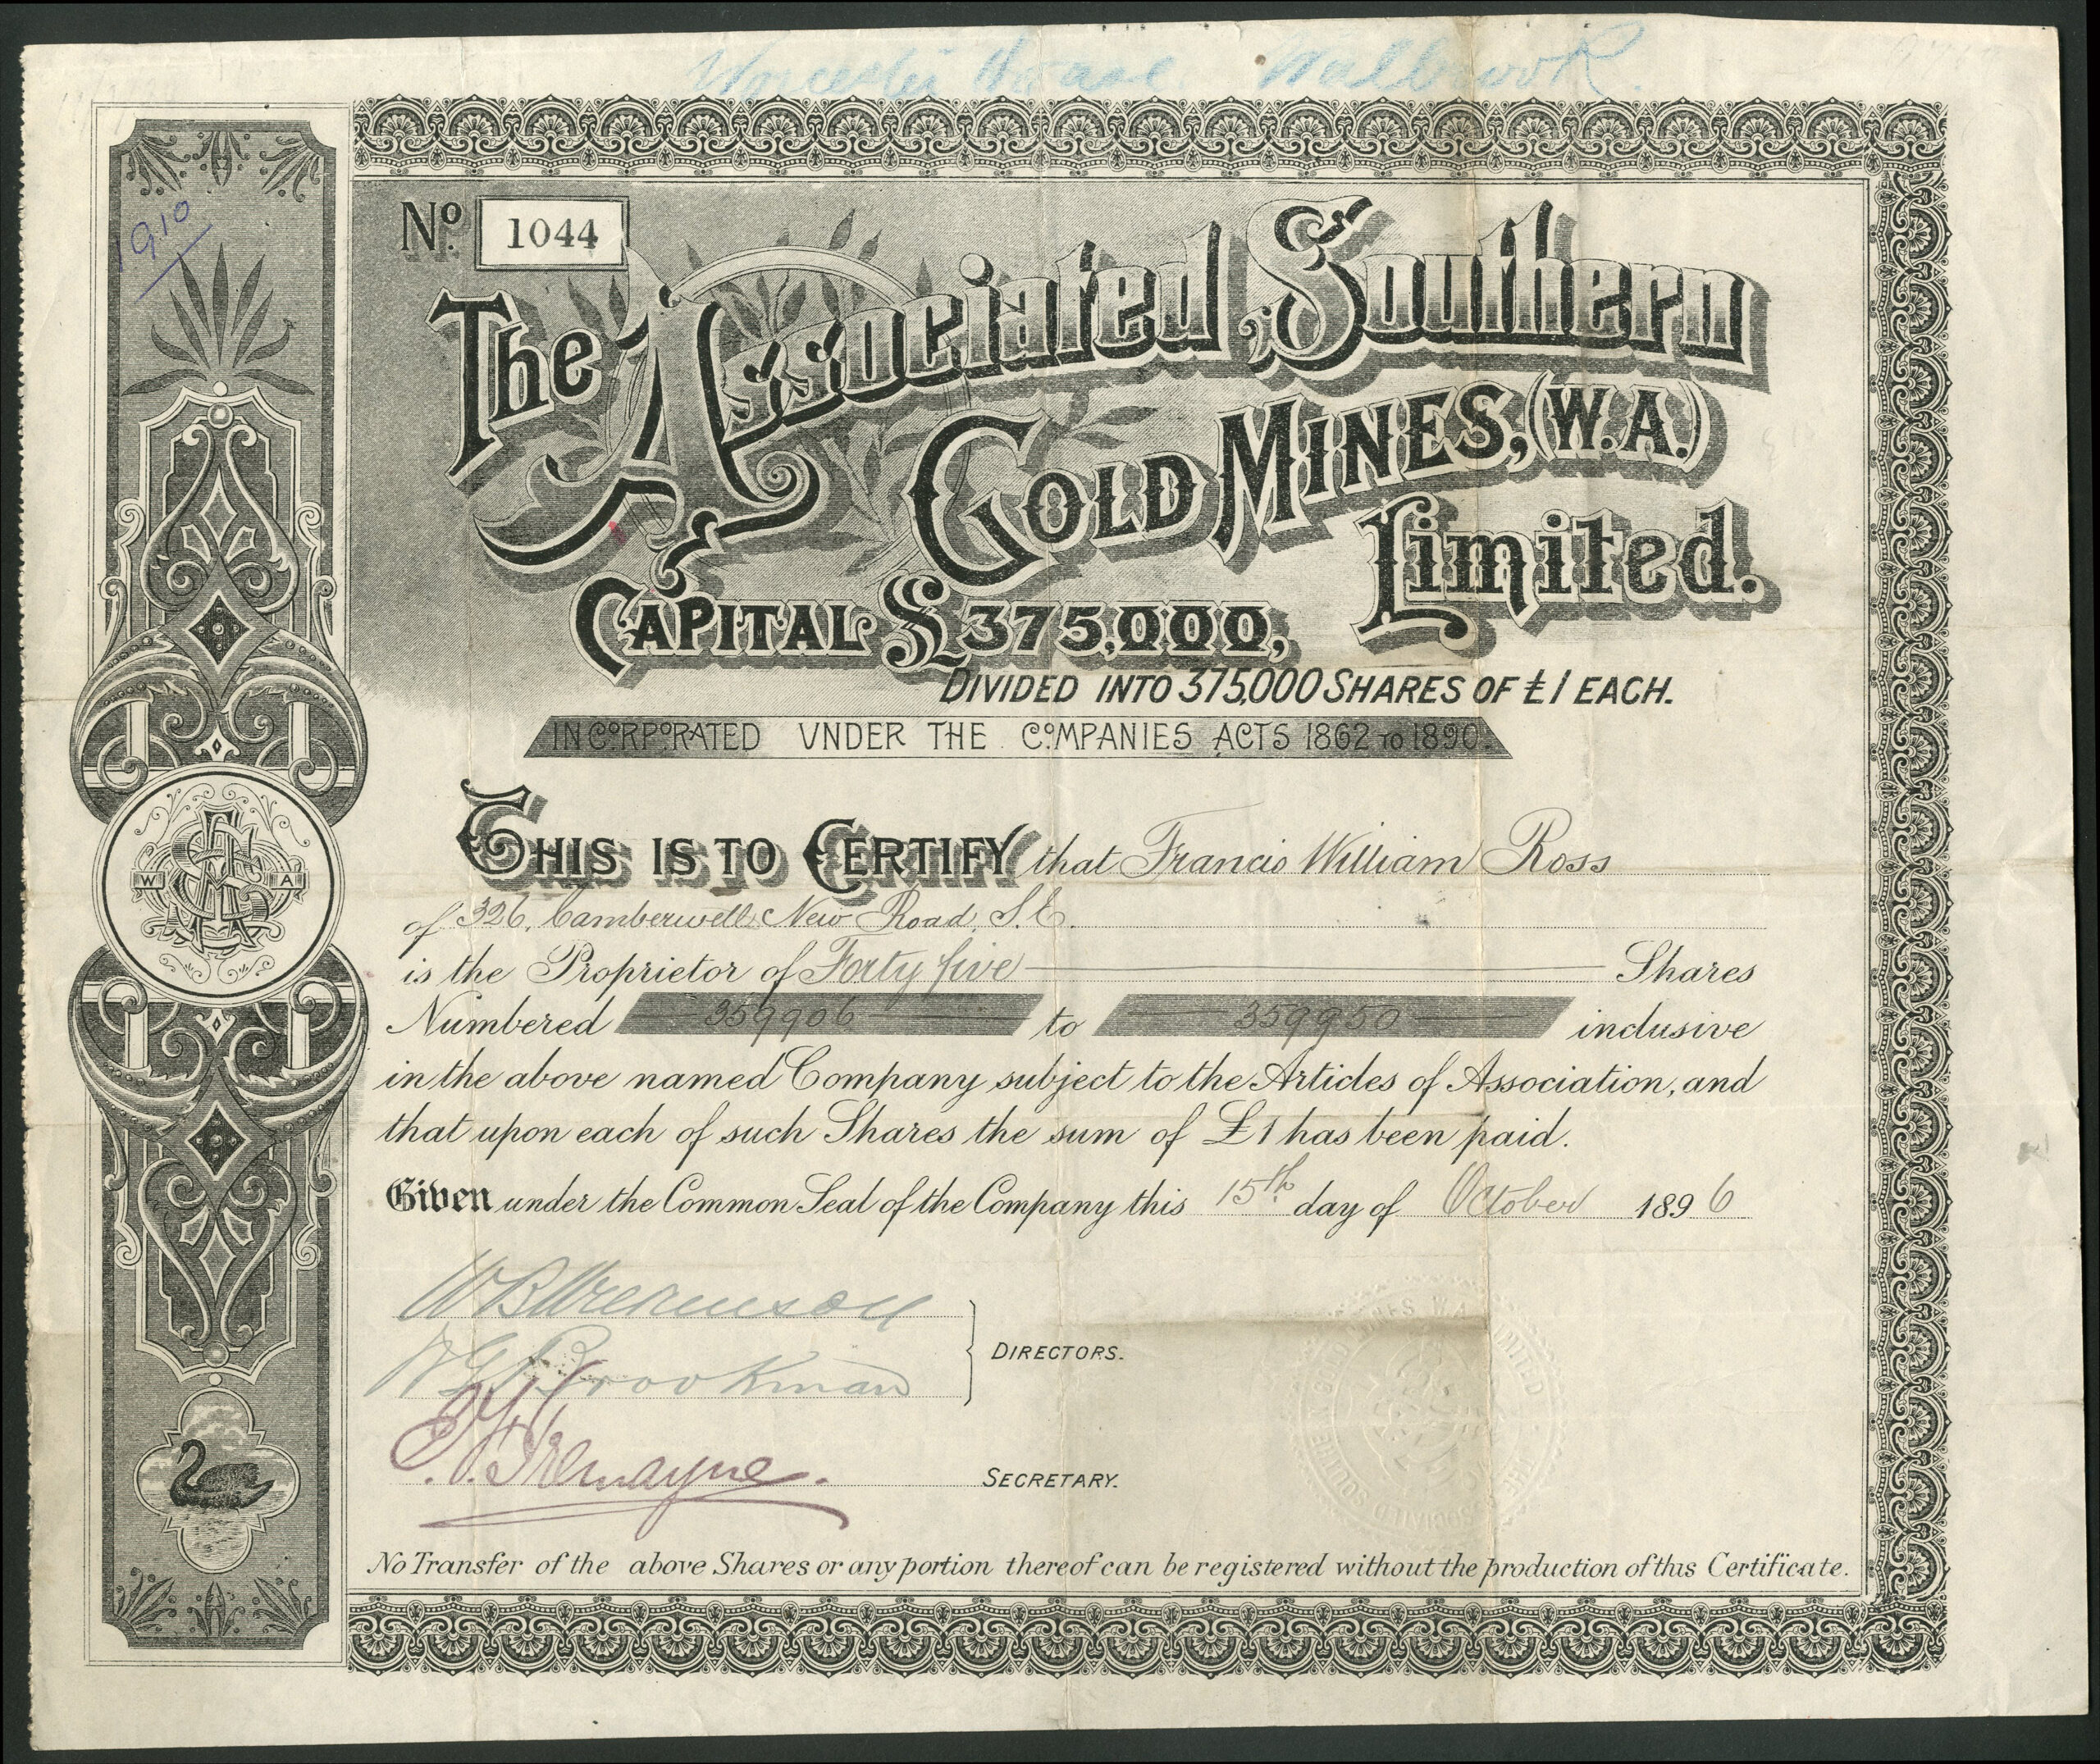 Worcester House Walbrook.
1910
No. 1044
The Associated Southern
Gold Mines, (W.A.)
Limited.
Capital £375,000,
Divided into 375,000 Shares of £1 each.
Incorporated under the Companies Acts 1862 to 1890.
W A
This is to Certify that Francis William Ross
of 326, Camberwell New Road, S.E.
is the Proprietor of Forty five Shares
Numbered 359906 to 359950 inclusive
in the above named Company subject to the Articles of Association, and
that upon each of such Shares the sum of £1 has been paid.
Given under the Common Seal of the Company this 15th day of October 1896
W G Brookman
Directors.
Tremayne.
Secretary.
No Transfer of the above Shares or any portion thereof can be registered without the production of this Certificate.